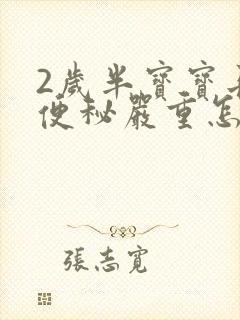 2歲半寶寶
便秘嚴重怎
張志寬